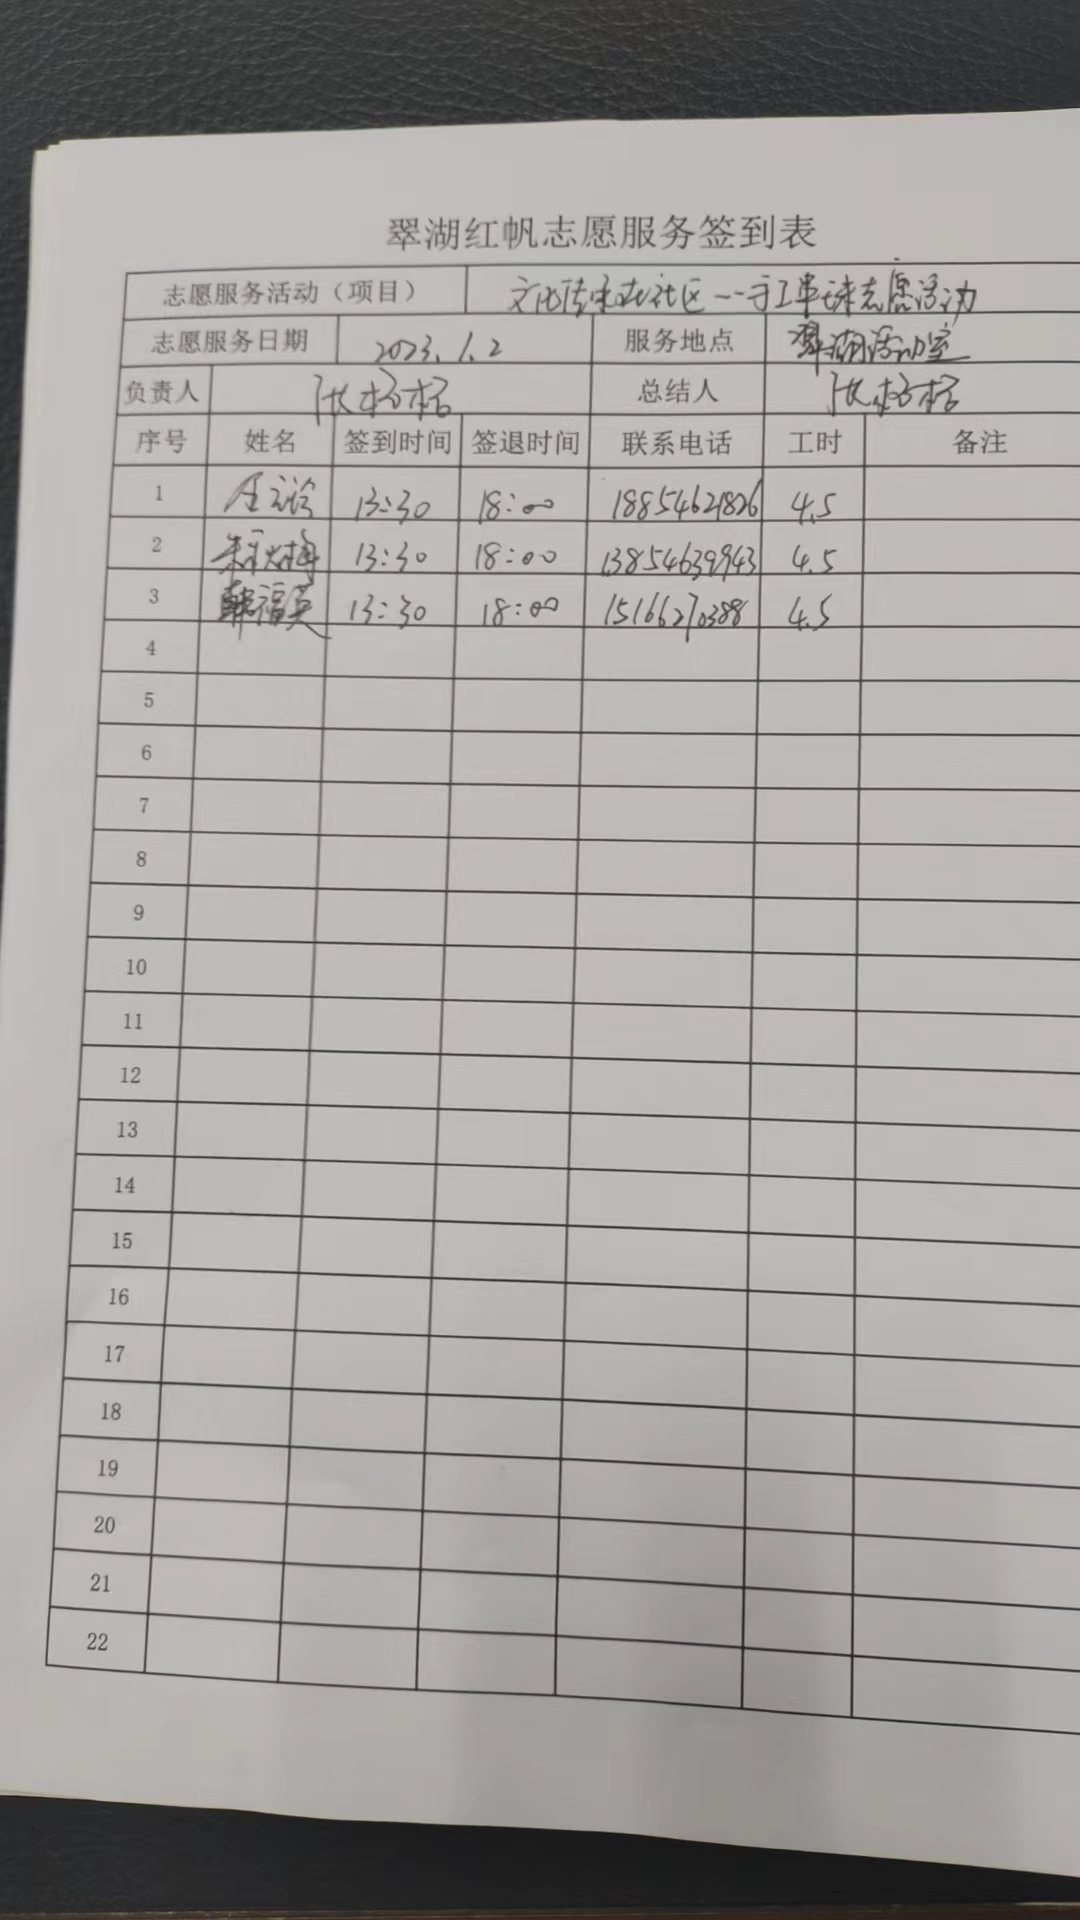 翠湖红帆志愿服务签到表
志愿服务活动（项目） 文化传承在社区--手工串珠志愿活动
志愿服务日期 2023.1.2 服务地点 翠湖活动室
负责人 张 总结人 张
序号 姓名 签到时间 签退时间 联系电话 工时 备注
1 13:30 18:00 18854621826 4.5
2 朱秋梅 13:30 18:00 13854639943 4.5
3 韩福英 13:30 18:00 15166270388 4.5
4
5
6
7
8
9
10
11
12
13
14
15
16
17
18
19
20
21
22